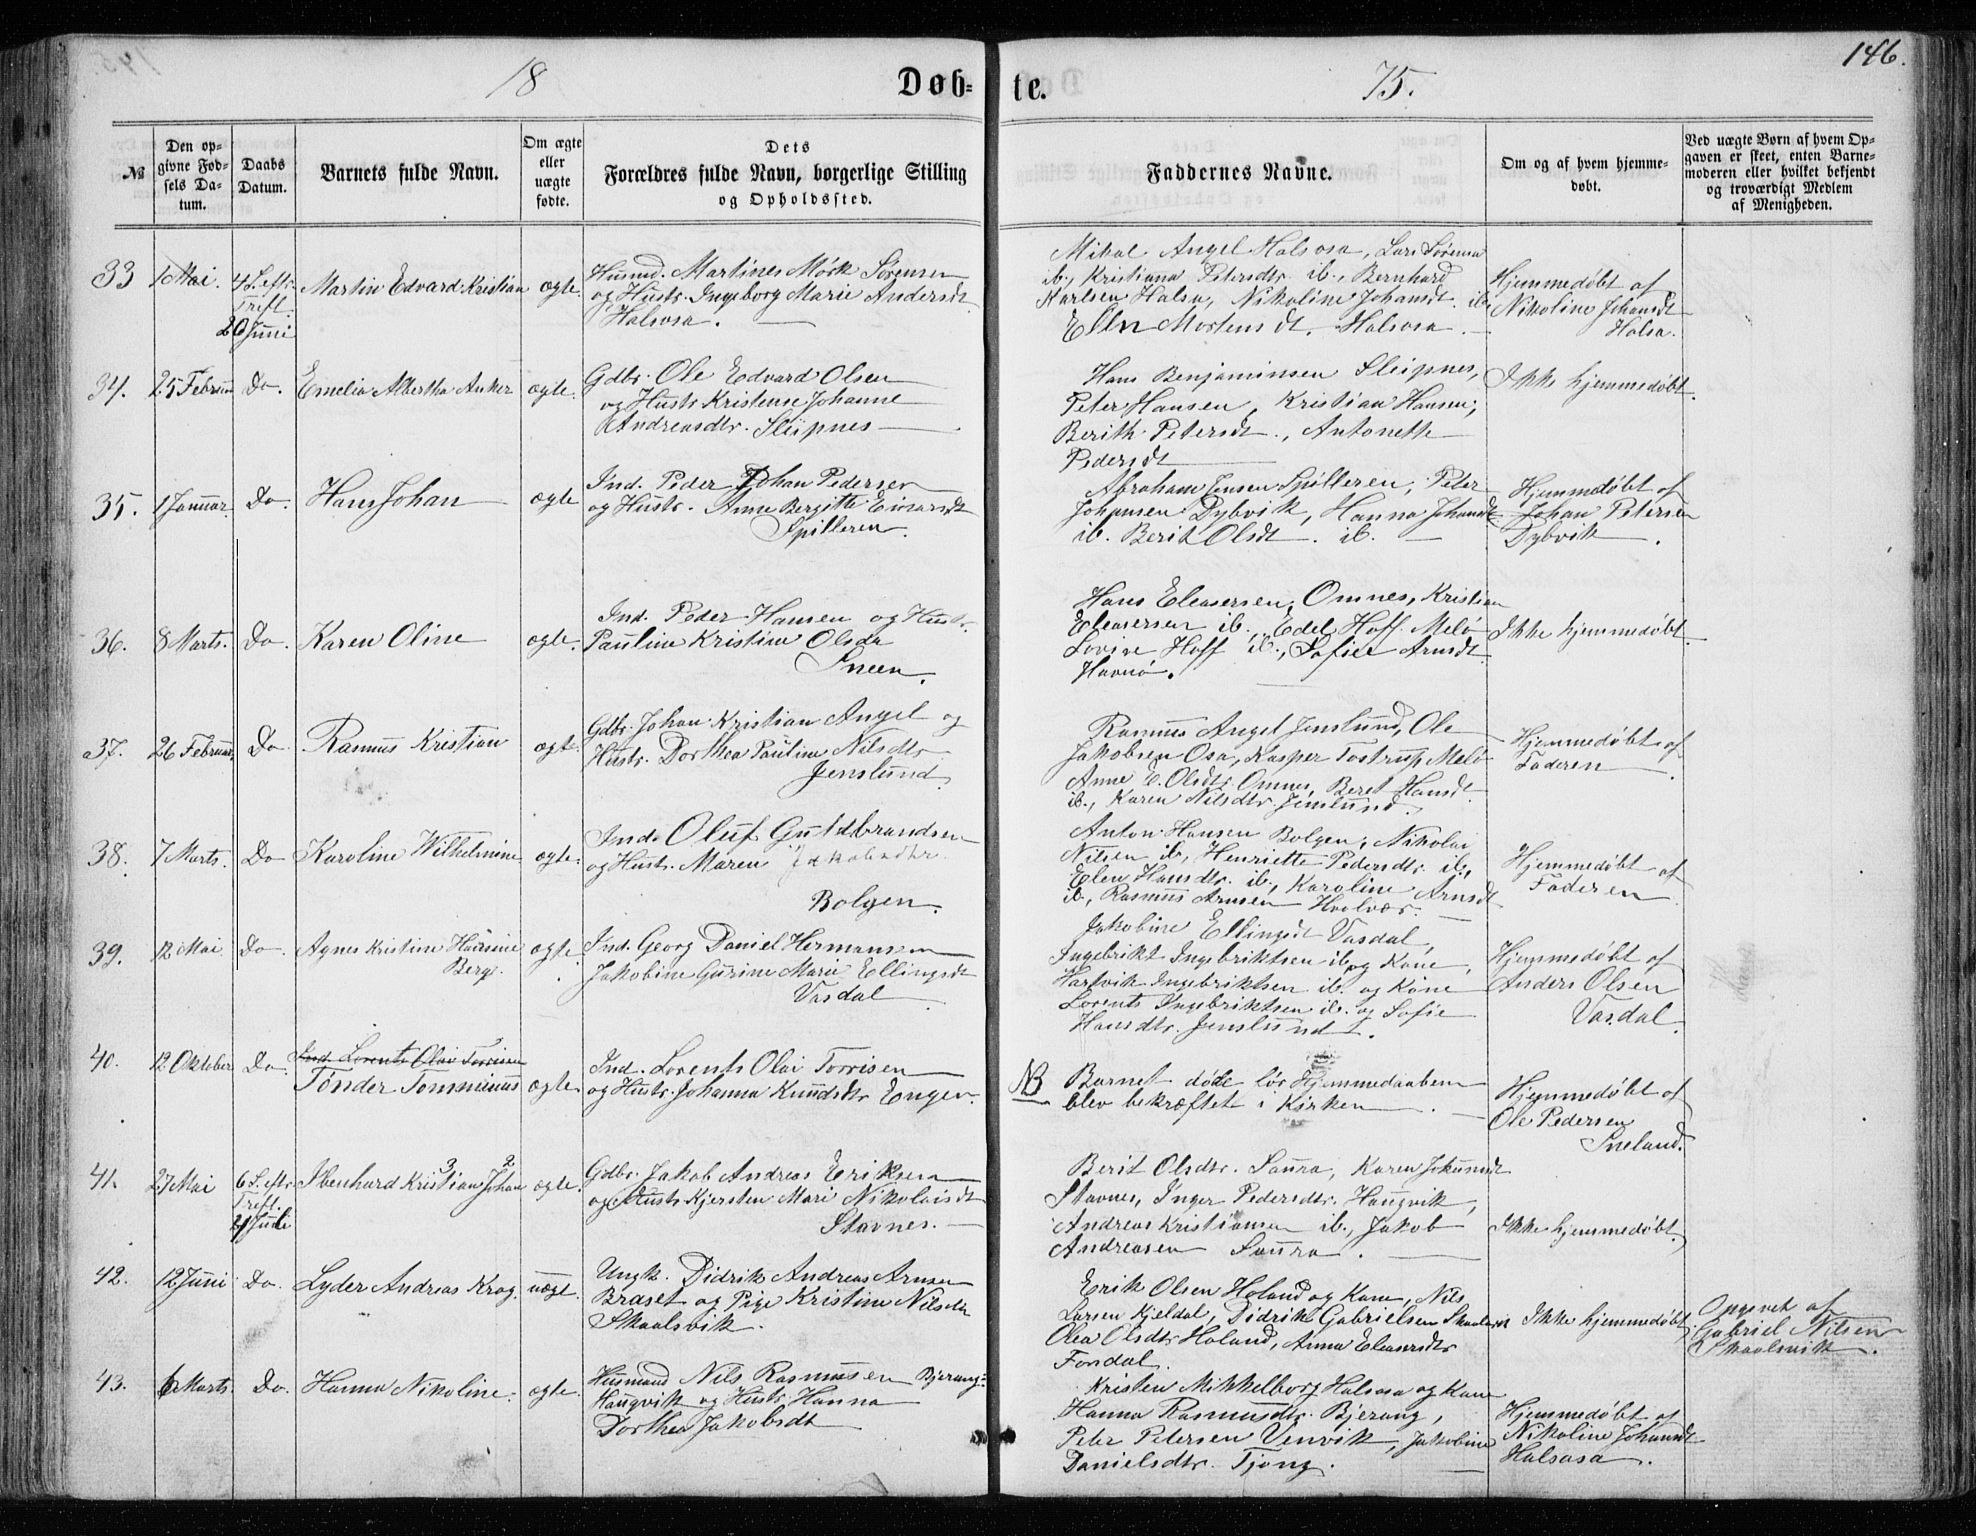 146.
18
Døb-
te.
75.
№
Den op-
givne Fød-
sels Da-
tum.
Daabs
Datum.
Barnets fulde Navn.
Om ægte
eller
uægte
fødte.
Dets
Forældres fulde Navn, borgerlige Stilling
og Opholdssted.
Faddernes Navne.
Om og af hvem hjemme-
døbt.
Ved uægte Børn af hvem Op-
gaven er skeet, enten Barne-
moderen eller hvilket bekjendt
og troværdigt Medlem
af Menigheden.
33
1 Mai.
4 S. eftr.
Treft.
20 Juni
Martin Edvard Kristian
ægte.
Husmd. Martines Mørk Sørensen
og Hustr. Ingeborg Marie Andersdt
Halsosa.
Mikal Angel Halsosa, Lars Sørensen
ib., Kristiana Petersdtr. ib., Bernhard
Karlsen Halsa, Nikoline Johansdt. ib.
Ellen Mortensdt. Halsosa
Hjemmedøbt af
Nikoline Johansdt
Halsa.
34.
25 Februar
Do.
Emelia Albertha Anker
ægte.
Gdbr. Ole Edvard Olsen
og Hustr Kristense Johanne
Andreasdtr. Sleipnes
Hans Benjaminsen Sleipnes,
Peter Hansen, Kristian Hansen,
Berith Petersdt., Antonette
Pedersdt
Ikke hjemmedøbt.
35.
1 Januar.
Do.
Hans Johan
ægte
Ind. Peder Johan Pedersen
og Hustr. Anne Bergitte Einarsdt
Spilleren.
Abraham Jensen Spilleren, Peter
Johansen Dybvik, Hanna Johansdt
ib. Berit Olsdt. ib.
Hjemmedøbt af
Johan Petersen
Dybvik.
36.
8 Marts.
Do.
Karen Oline
ægte.
Ind. Peder Hansen og Hustr.
Pauline Kristine Olsdr
Sneen.
Hans Eleasersen, Omnes, Kristian
Eleasersen ib., Edel Hoff Melø
Lovise Hoff ib., Sofie Arnsdt
Havnø.
Ikke hjemmedøbt.
37.
26 Februar,
Do
Rasmus Kristian
ægte.
Gdbr. Johan Kristian Angel og
Hustr. Dorthea Pauline Nilsdtr
Jenslund.
Rasmus Angel Jenslund, Ole
Jakobsen Osa, Kasper Tostrup Melø
Anne E. Olsdtr. Omnes, Beret Hansdt
ib., Karen Nilsdtr. Jenslund.
Hjemmedøbt af
Faderen.
38.
7 Marts.
Do
Karoline Wilhelmine
ægte.
Ind. Oluf Guldbrandsen
og Hustr. Maren Jakobsdtr.
Bolgen.
Anton Hansen Bolgen, Nikolai
Nilsen ib., Henriette Pedersdtr. ib.,
Elen Hansdtr. ib., Karoline Arnsdt
ib., Rasmus Arnsen Hvolvær.
Hjemmedøbt af
Faderen.
39.
12 Mai
Do.
Agnes Kristine Hansine
Berg.
ægte.
Ind. Georg Daniel Hermansen
Jakobine Gurine Marie Ellingsdt
Vasdal
Jakobine Ellingsdt Vasdal,
Ingebrikt Ingebriktsen ib. og Kone,
Hartvik Ingebriktsen ib. og Kone
Lorents Ingebriktsen ib. og Sofie
Hansdtr. Jenslund.
Hjemmedøbt af
Anders Olsen
Vasdal.
40.
12 Oktober
Do.
Ind. Lorents Olai Torrisen
Tønder Tomminus
ægte.
Ind. Lorents Olai Torrisen
og Hustr. Johanna Knudsdtr Engen.
NB
Barnet døde før Hjemmedaaben
blev bekræftet i Kirken.
Hjemmedøbt af
Ole Pedersen
Sneland.
41.
27 Mai
6 S. eftr.
Treft.
4 Juli
Ibenhard Kristian Johan
3 2
ægte.
Gdbr. Jakob Andreas Eriksen
og Hustr Kjersten Mari Nikolaisdt
Stavnes.
Berit Olsdtr. Saura, Karen Johansdt
Stavnes, Inger Pedersdtr. Haugvik,
Andreas Kristiansen ib., Jakob
Andreasen Saura.
Ikke hjemmedøbt.
42.
12 Juni
Do.
Lyder Andreas Krog.
uægt.
Ungk. Didrik Andreas Arnsen
Braset og Pige Kristine Nilsdtr
Skaalsvik.
Erik Olsen Holand og Kone, Nils
Larsen Kjeldal, Didrik Gabrielsen Skaalsvik
Olea Olsdtr. Holand, Anna Eleasersdtr
Fondal.
Ikke hjemmedøbt.
Opgivet af
Gabriel Nilsen
Skaalsvik.
43.
6 Marts.
Do.
Hanna Nikoline.
ægte.
Husmand Nils Rasmussen Bjerang-
Haugvik og Hustr. Hanna
Dorthea Jakobsdt
Kristen Mikkelborg Halsosa og Kone
Hanna Rasmusdtr. Bjerang,
Peter Petersen Venvik, Jakobine
Danielsdtr. Tjong.
Hjemmedøbt af
Nikoline Johansdt
Halsosa.